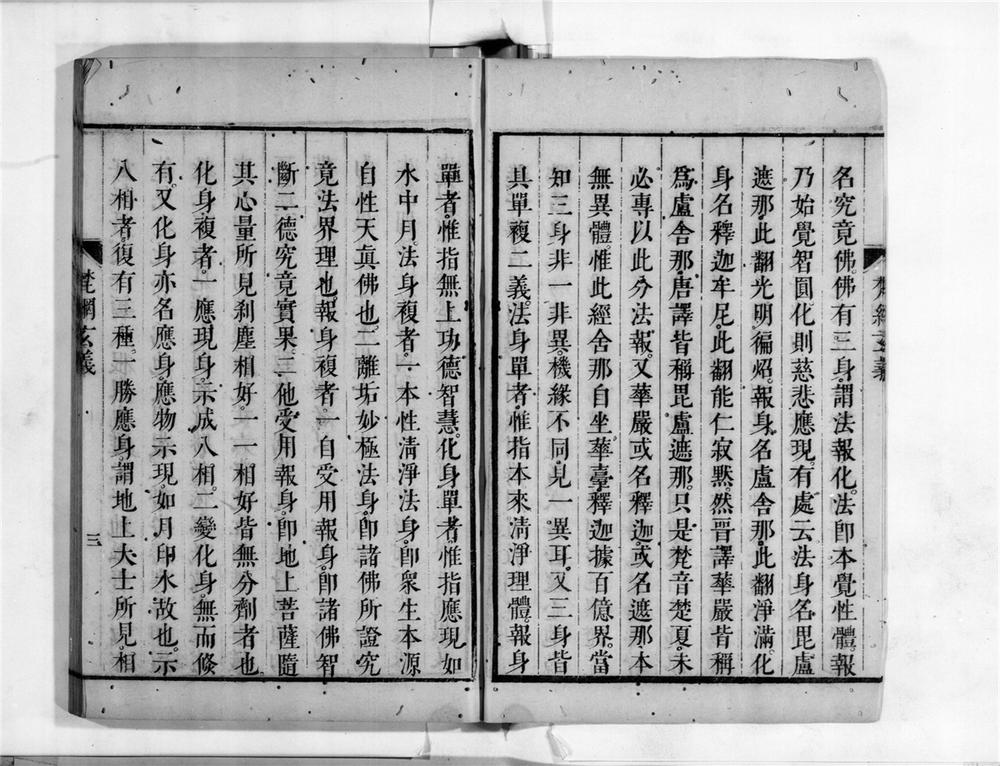 名究竟佛佛有三身。謂法報化。法卽本覺性體。報
乃始覺智圓。化則慈悲應現。有處云法身名毘盧
遮那。此翻光明徧炤。報身名盧舍那。此翻淨滿。化
身名釋迦牟尼。此翻能仁寂默。然晉譯華嚴皆稱
爲盧舍那。唐譯皆稱毘盧遮那。只是梵音楚夏。未
必專以此分法報。又華嚴或名釋迦。或名遮那。本
無異體。惟此經舍那自坐華臺。釋迦據百億界。當
知三身非一非異。機緣不同。見一異耳。又三身皆
具單複二義。法身單者。惟指本來淸淨理體。報身
梵網玄義
單者。惟指無上功德智慧。化身單者。惟指應現如
水中月。法身複者。一本性淸淨法身。卽衆生本源
自性天眞佛也。二離垢妙極法身。卽諸佛所證究
竟法界理也。報身複者。一自受用報身。卽諸佛智
斷二德究竟實果。二他受用報身。卽地上菩薩隨
其心量所見刹塵相好。一一相好皆無分劑者也。
化身複者。一應現身。示成八相。二變化身。無而倏
有。又化身亦名應身。應物示現。如月印水故也。示
八相者。復有三種。一勝應身。謂地上大士所見。相
梵網玄義
三